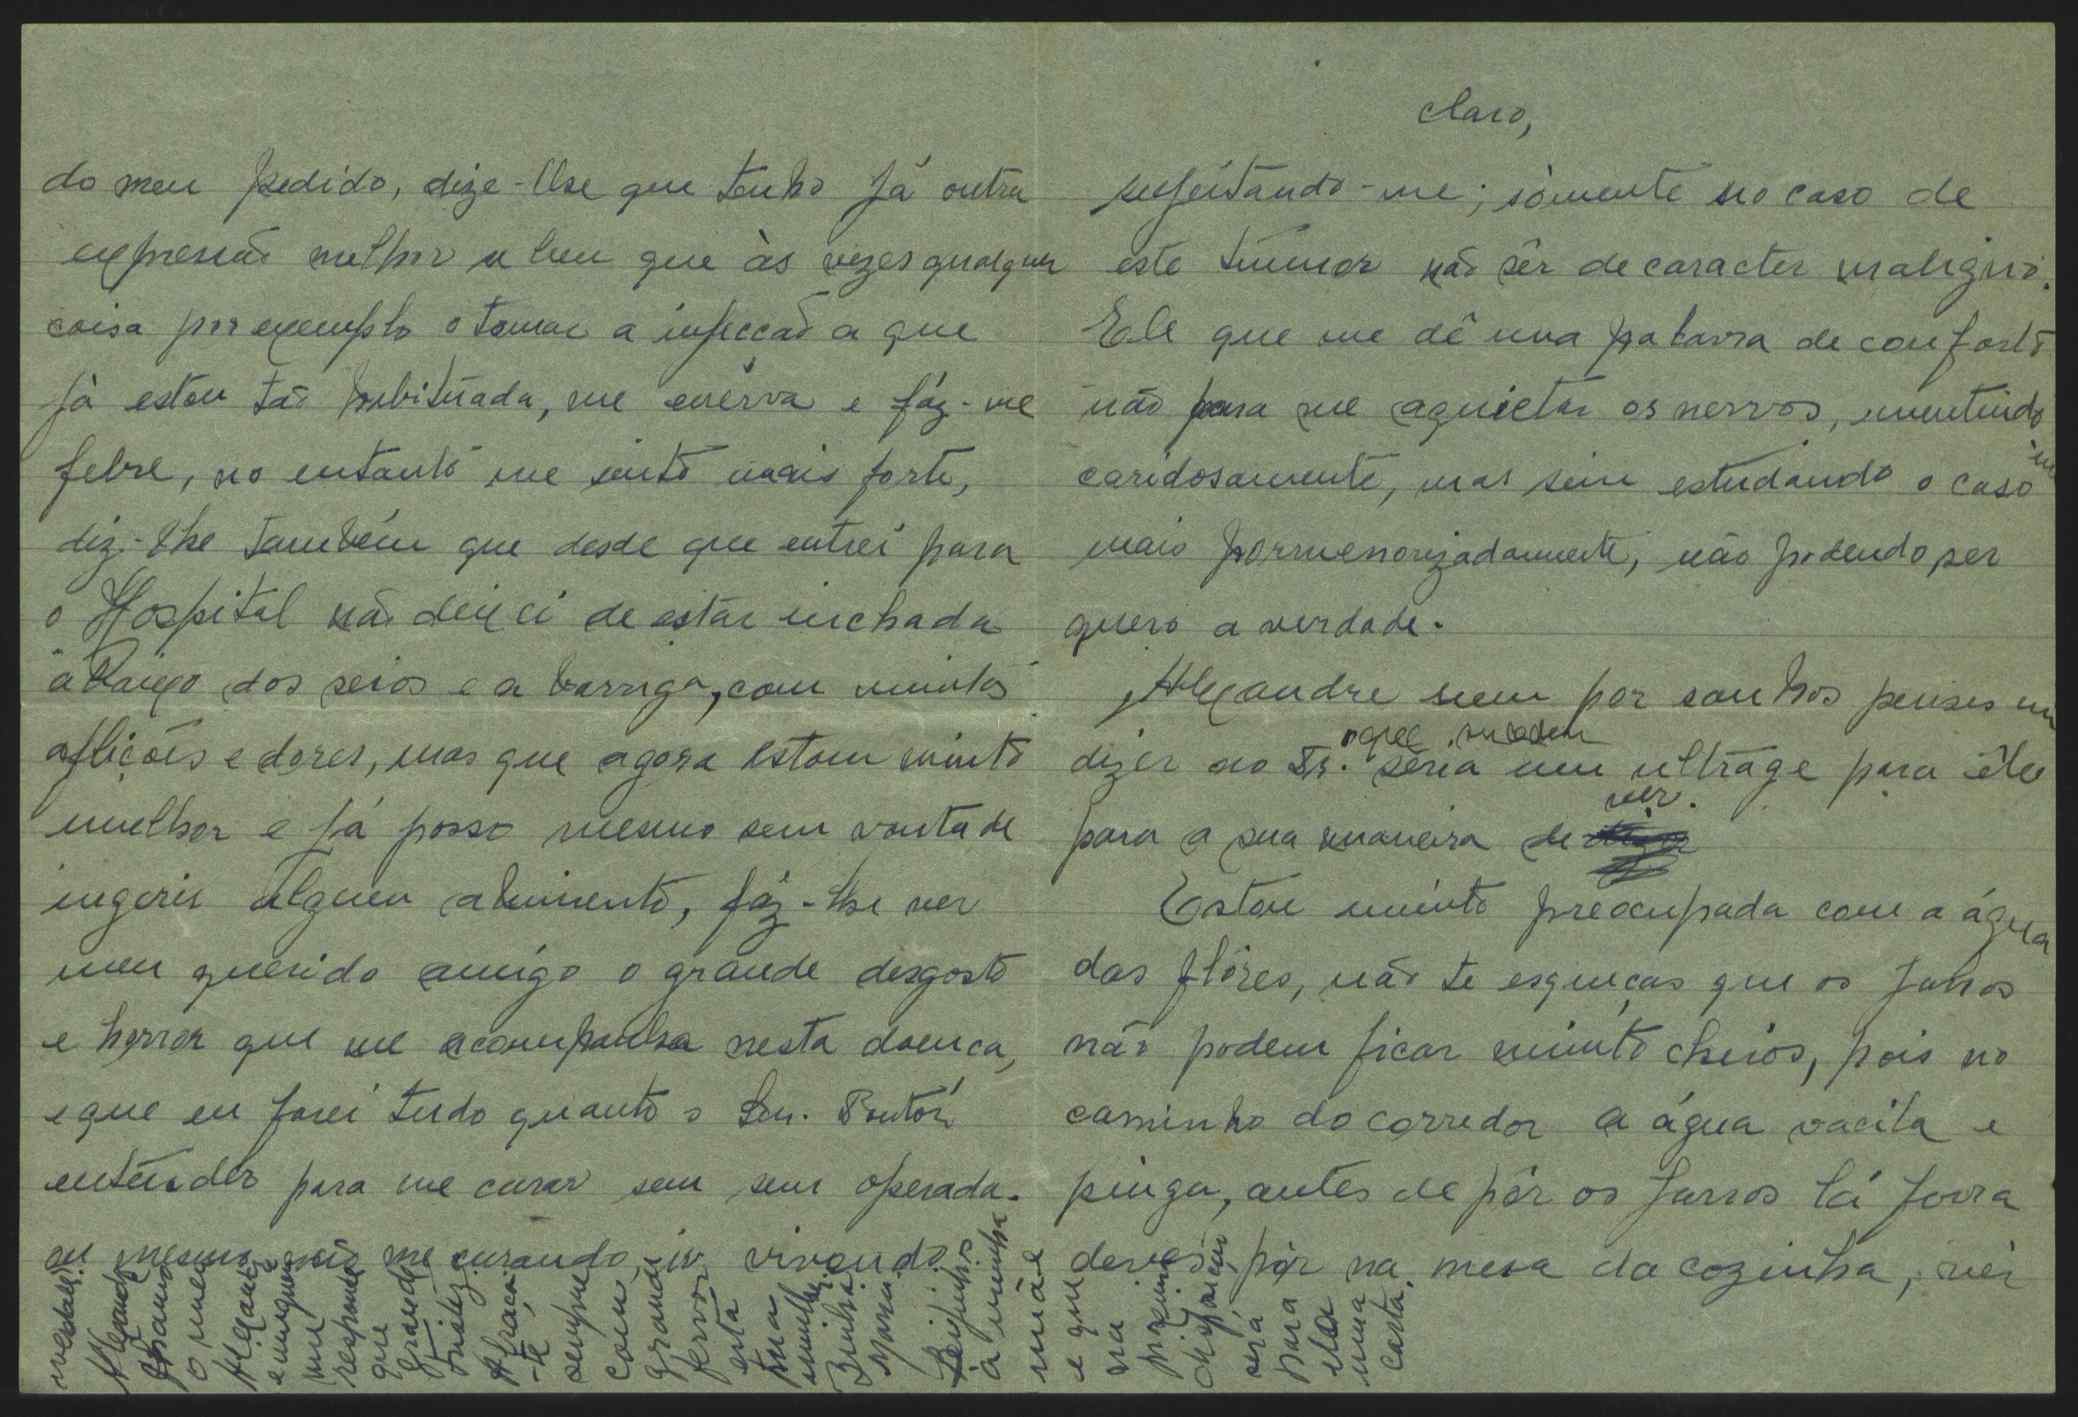 do meu pedido, dize-lhe que tenho já outra
expressão melhor e bem que às vezes qualquer
coisa por exemplo o tomar a injecção a que
já estou tão habituada, me enerva e fáz-me
febre, no entanto me sinto mais forte,
diz-lhe também que desde que entrei para
o Hospital não deixei de estar inchada
abaixo dos seios e a barriga, com muitas
aflições e dores, mas que agora estou muito
melhor e já posso mesmo sem vontade
ingerir algum alimento, fáz-lhe ver
meu querido amigo o grande desgosto
e horror que me acompanha nesta doença,
e que eu farei tudo quanto o Sen. Doutôr
entender para me curar sem ser operada.
ou mesmo não me curando, ir vivendo
claro,
sujeitando-me; sòmente no caso de
este tumor não sêr de caracter maligno.
Ele que me dê uma palavra de conforto
não para me aquietar os nervos, mentindo
caridosamente, mas sim estudando o caso
mais pormenorizadamente, não podendo ser
quero a verdade.
Alexandre nem por sonhos penses em
dizer ao Dr. o que sucedeu seria um ultrage para êle
para a sua maneira de ver.
Estou muito preocupada com a água
das flôres, não te esqueças que os jarros
não podem ficar muito cheios, pois no
caminho do corredor a água vacila e
pinga, antes de pôr os jarros lá fora
deves pôr na mesa da cozinha, vêr
Alexandre
o meu
Alexandre
e ninguem
me
responde
que
grande
tristez
Abraça
-te
sempre
com
grande
fervor
esta
tua
Maria
Beijinhos
à minha
mãe
e que
na
próxima
será
para
ela
uma
carta.